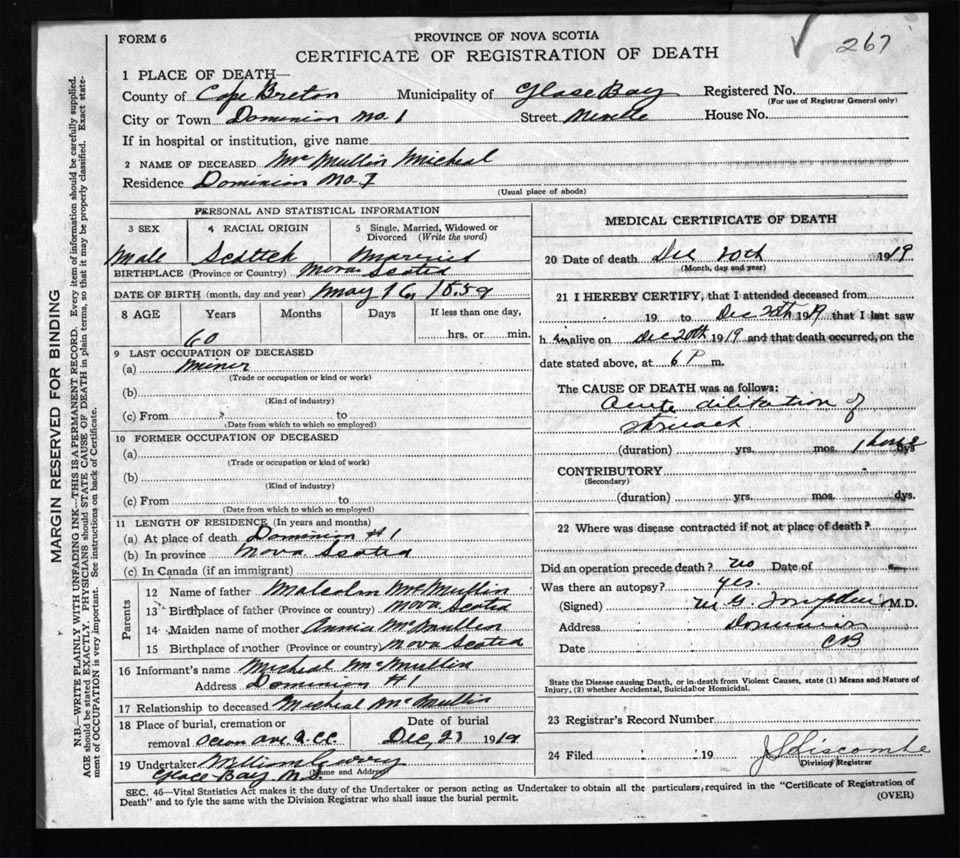 267
FORM 6
PROVINCE OF NOVA SCOTIA
CERTIFICATE OF REGISTRATION OF DEATH
MARGIN RESERVED FOR BINDING
N.B.—WRITE PLAINLY WITH UNFADING INK—THIS IS A PERMANENT RECORD. Every item of information should be carefully supplied.
AGE should be stated EXACTLY. PHYSICIANS should STATE CAUSE OF DEATH in plain terms, so that it may be properly classified. Exact state-
ment of OCCUPATION is very important. See instructions on back of Certificate.
1 PLACE OF DEATH—
County of Cape Breton Municipality of Glace Bay Registered No.
(For use of Registrar General only)
City or Town Dominion No. 1 Street House No.
If in hospital or institution, give name
2 NAME OF DECEASED McMullin Micheal
Residence Dominion No. 1
(Usual place of abode)
PERSONAL AND STATISTICAL INFORMATION
3 SEX 4 RACIAL ORIGIN 5 Single, Married, Widowed or
Divorced (Write the word)
Male Scottch Married
BIRTHPLACE (Province or Country) Nova Scotia
DATE OF BIRTH (month, day and year) May 16, 1859
8 AGE Years Months Days If less than one day,
60 hrs. or min.
9 LAST OCCUPATION OF DECEASED
(a) Miner
(Trade or occupation or kind or work)
(b)
(Kind of industry)
(c) From to
(Date from which to which so employed)
10 FORMER OCCUPATION OF DECEASED
(a)
(Trade or occupation or kind of work)
(b)
(Kind of industry)
(c) From to
(Date from which to which so employed)
11 LENGTH OF RESIDENCE (In years and months)
(a) At place of death Dominion #1
(b) In province Nova Scotia
(c) In Canada (if an immigrant)
Parents
12 Name of father Malcolm McMullin
13 Birthplace of father (Province or country) Nova Scotia
14 Maiden name of mother Annie McMullin
15 Birthplace of mother (Province or country) Nova Scotia
16 Informant's name Micheal McMullin
Address Dominion #1
17 Relationship to deceased Micheal McMullin
18 Place of burial, cremation or Date of burial
removal Ocean Ave Dec, 23 1919
19 Undertaker William Curry
Glace Bay N.S. (Name and Address)
MEDICAL CERTIFICATE OF DEATH
20 Date of death Dec 20th 1919
(Month, day and year)
21 I HEREBY CERTIFY, that I attended deceased from
19 to Dec 20th 1919 that I last saw
h im alive on Dec 20th 1919 and that death occurred, on the
date stated above, at 6 P m.
The CAUSE OF DEATH was as follows:
Acute dilitation of
stomach
(duration) yrs. mos. dys
CONTRIBUTORY
(Secondary)
(duration) yrs. mos. dys.
22 Where was disease contracted if not at place of death?
Did an operation precede death? no Date of
Was there an autopsy? yes.
(Signed) M.D.
Address Dominion
Date CB
State the Disease causing Death, or in death from Violent Causes, state (1) Means and Nature of
Injury, (2) whether Accidental, Suicidal or Homicidal.
23 Registrar's Record Number
24 Filed 19 J. Liscombe
Division Registrar
SEC. 46—Vital Statistics Act makes it the duty of the Undertaker or person acting as Undertaker to obtain all the particulars required in the "Certificate of Registration of
Death" and to fyle the same with the Division Registrar who shall issue the burial permit.
(OVER)